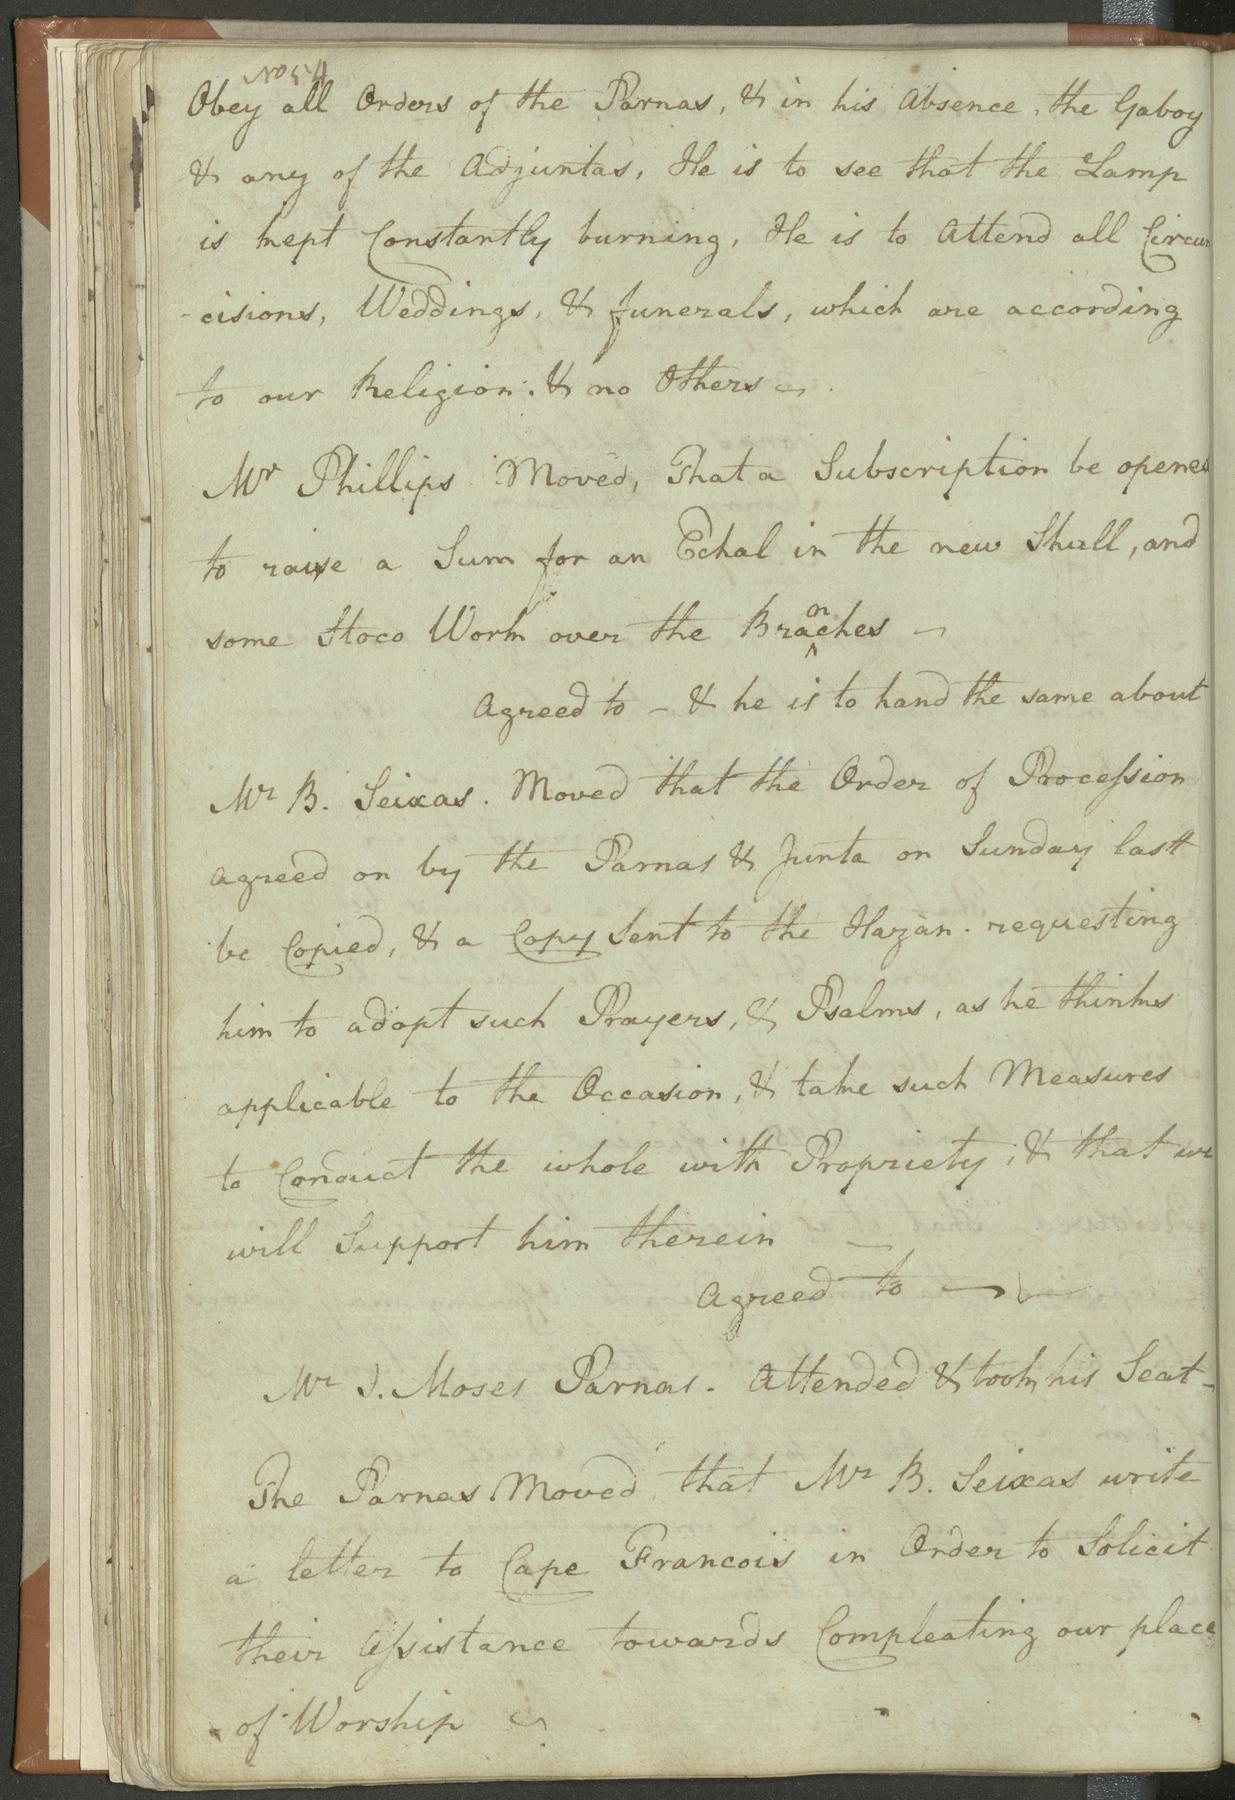 No 54
Obey all Orders of the Parnas, & in his Absence, the Gaboy
& any of the Adjuntas, He is to see that the Lamp
is kept Constantly burning, He is to Attend all Circum
-cisions, Weddings, & Funerals, which are according
to our Religion: & no Others
Mr Phillips Moved, That a Subscription be opened
to raise a Sum for an Echal in the new Shull, and
some Stoco Work over the Branches
Agreed to - & he is to hand the same about
Mr B. Seixas. Moved that the Order of Procession
agreed on by the Parnas & Junta on Sunday last
be Copied, & a Copy Sent to the Hazan. requesting
him to adopt such Prayers, & Psalms, as he thinks
applicable to the Occasion, & take such Measures
to Conduct the whole with Propriety; & that we
will Support him therein
Agreed to
Mr J. Moses Parnas. Attended & took his Seat-
The Parnas Moved that Mr B. Seixas write
a letter to Cape Francois in Order to Solicit
their Assistance towards Compleating our place
of Worship